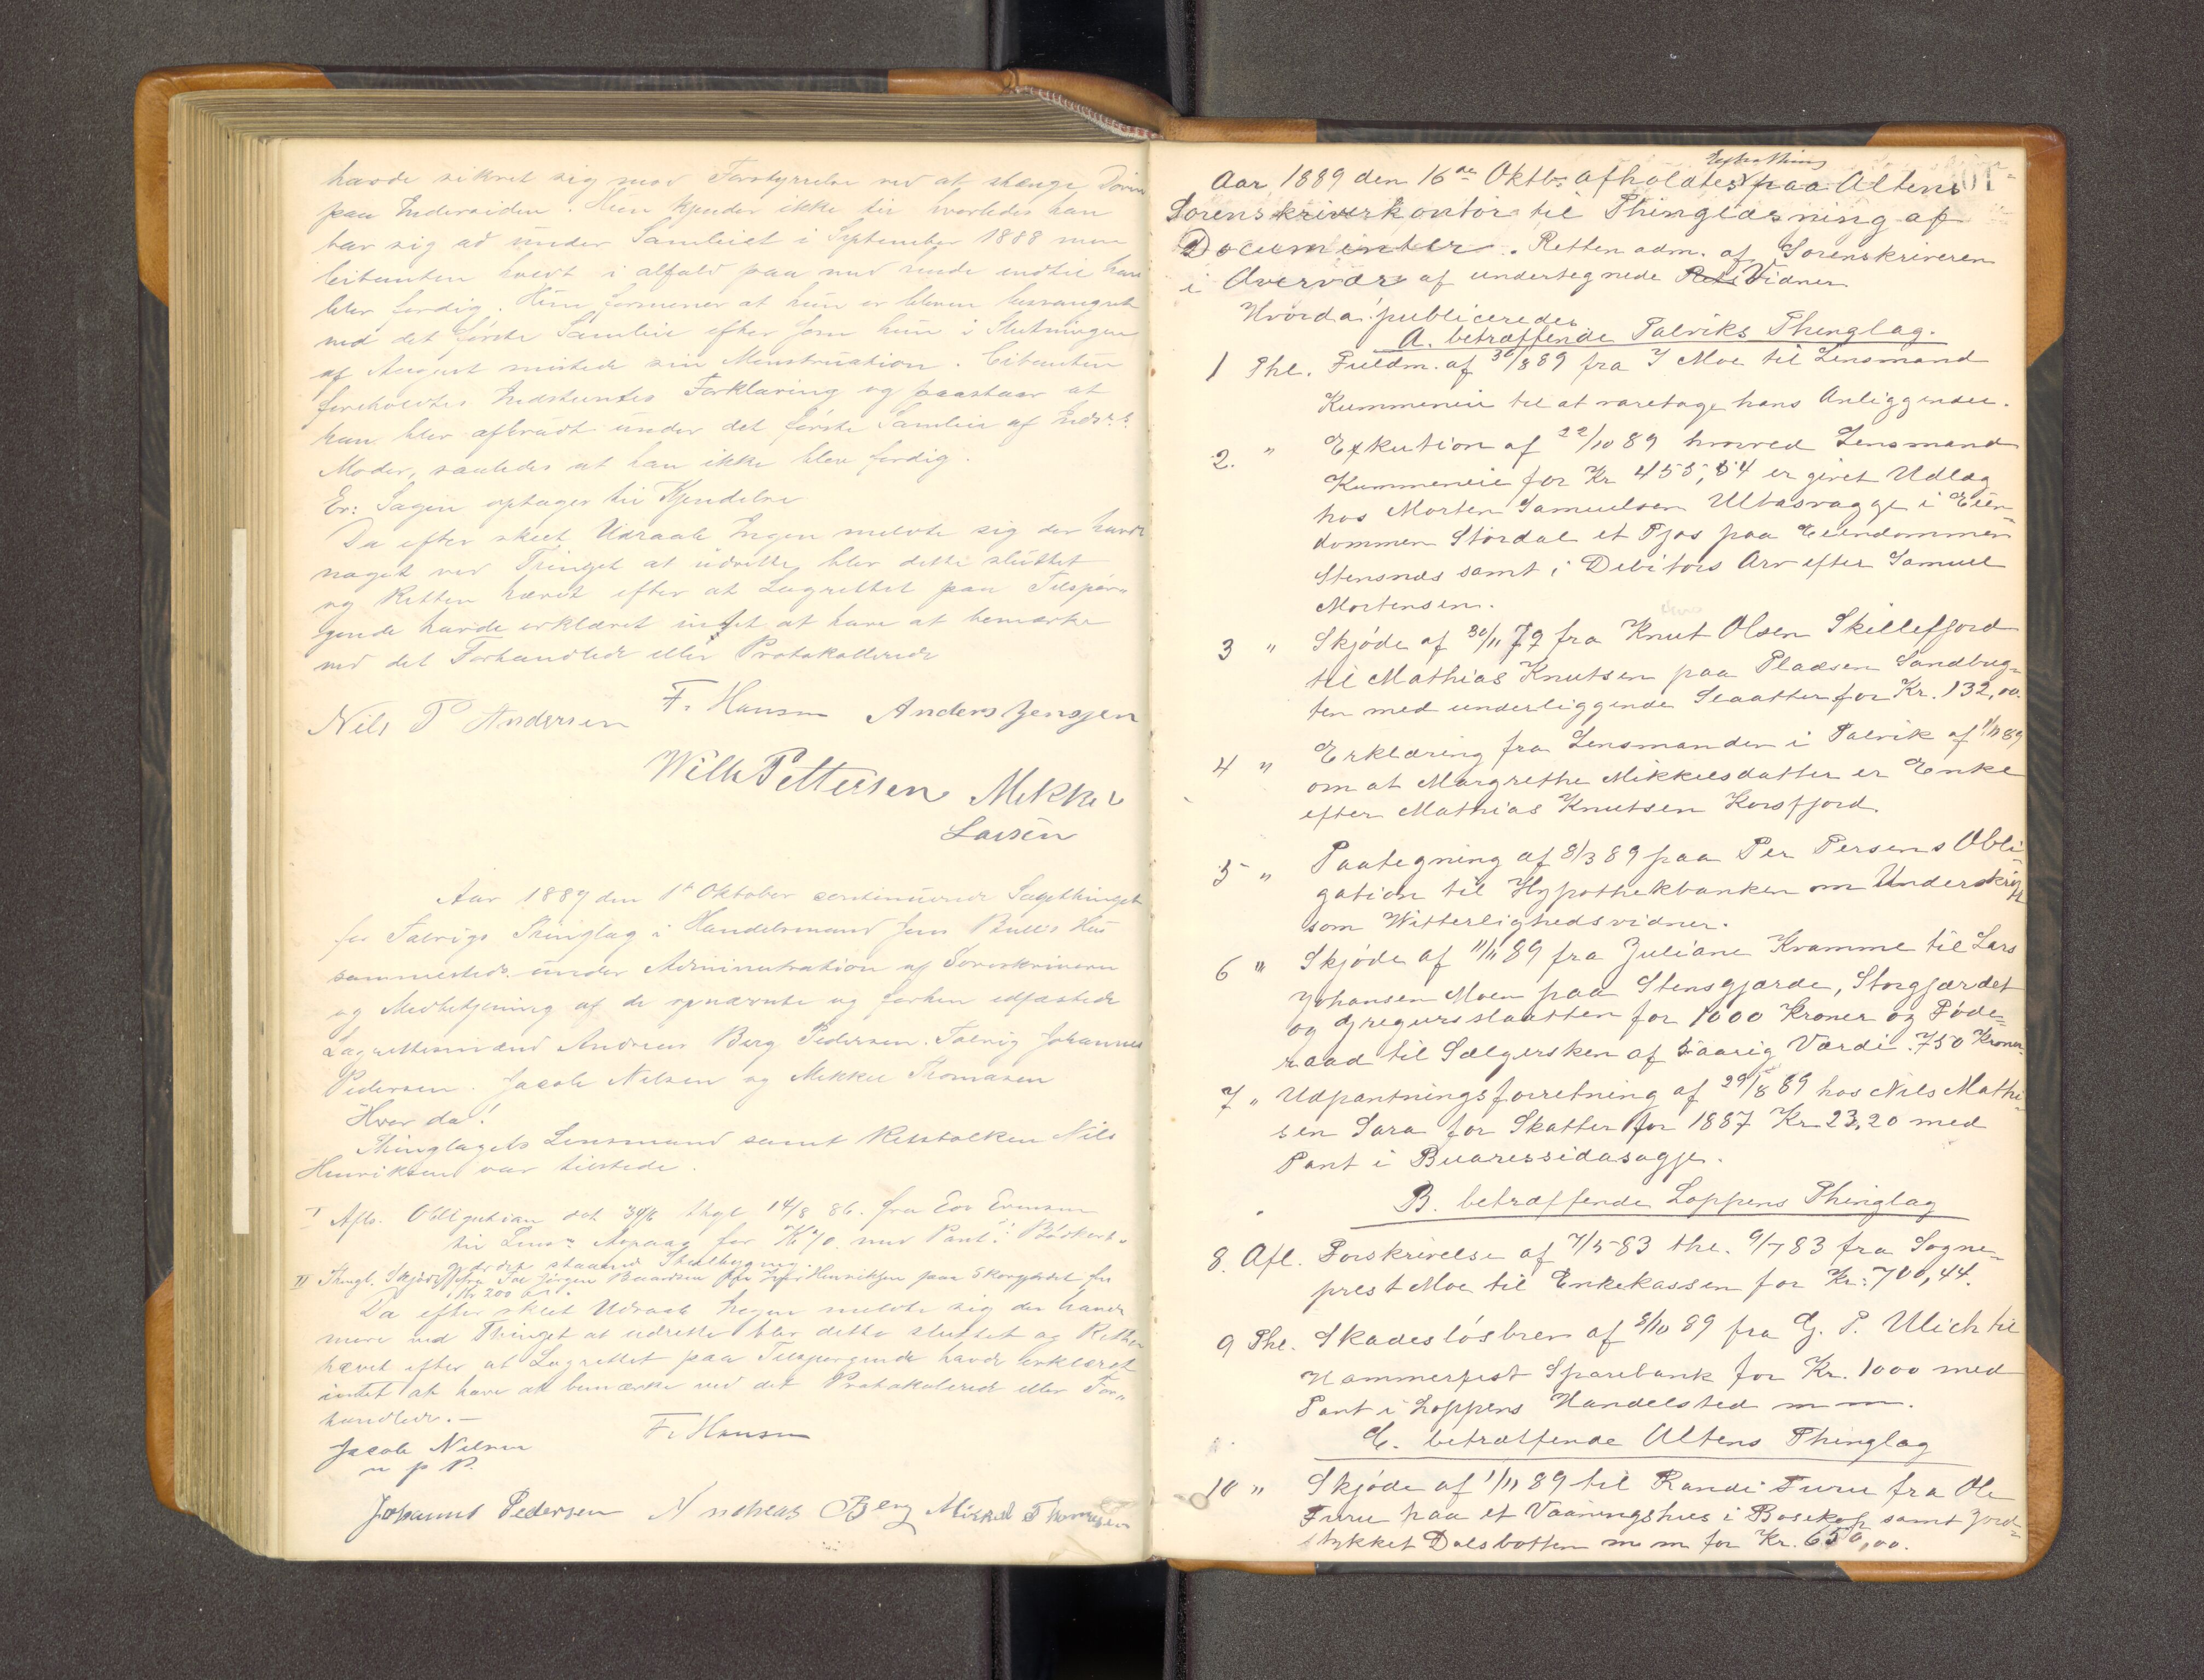 havde sikret sig mod Forstyrrelse ved at stænge Døren
paa Indersiden. Hun kjender ikke til hvorledes han
bar sig ad under Samleiet i September 1888 men
Citanten holdt i alfald paa med hende indtil han
blev færdig. Hun formener at hun er bleven besvangret
ved det første Samleie efter som hun i Slutningen
af August mistede sin Menstruation. Citanten
foreholdtes Indstevntes Forklaring og paastaar at
han blev afbrudt under det første Samleie af Indst.s
Moder, saaledes at han ikke blev færdig.
Er: Sagen optages til Kjendelse
Da efter skeet Udraab Ingen meldte sig der havde
noget ved Thinget at udrette, blev dette sluttet
og Retten hævet efter at Lagrettet paa Tilspør„
gende havde erklæret intet at have at bemærke
ved det Forhandlede eller Protokollerede
Nils P Andersen F. Hansen Anders Jensen
Wilh Pettersen Mikkel
Larsen
Aar 1889 den 1st Oktober continuerede Sagethinget
for Talvigs Thinglag i Handelsmand Jens Bull's Hus
sammesteds under Administration af Sorenskriveren
og Medbetjening af de opnævnte og forhen edfæstede
Lagrettesmænd Andreas Berg Pedersen. Talvig Johannes
Pedersen. Jacob Nilsen og Mikkel Thomasen
Hvor da!
Thinglagets Lensmand samt Retstolken Nils
Henriksen var tilstede.
I Afls. Obligation dat 30/6 thgl 14/8 86. fra
til Lensm. for Kr. med Pant i
gaarden staaende
II Thingl. Skjøde fra Jørgen til Henriksen paa for
Kr 200
Da efter skeet Udraab Ingen meldte sig der havde
mere ved Thinget at udrette blev dette sluttet og Retten
hævet efter at Lagrettet paa Tilspørgende havde erklæret
intet at have at bemærke ved det Protokolerede eller For„
handlede.—
F. Hansen
Jacob Nilsen
m p P.
Johannes Pedersen Andreas Berg Mikkel Thomassen
Extrathing
Aar 1889 den 16de Oktb. afholdtes paa Altens
Sorenskriverkontor til Thinglæsning af
Documenter. Retten adm. af Sorenskriveren
i Overvær af undertegnede Vidner
Hvorda publiceredes
A. betræffende Talviks Thinglag.
1 Thl. Fuldm. af 30/8 89 fra J Moe til Lensmand
Kummeneie til at varetage hans Anliggender.
2. " Exkution af 22/10 89 hvorved Lensmand
Kummeneie for Kr 455,54 er givet Udlæg
hos Morten Samuelsen Ulvasvagge i Eien=
dommen Stordal et Fjøs paa Eiendommen
Stensnæs samt i Debitors Arv efter Samuel
Mortensen.
3 " Skjøde af 30/11 79 fra Knut Olsen Skillefjord
til Mathias Knutsen paa Pladsen Sandbug=
ten med underliggende Slaatter for Kr. 132,00.
4 " Erklæring fra Lensmanden i Talvik af 1/11 89
om at Margrethe Mikkelsdatter er Enke
efter Mathias Knutsen Korsfjord.
5 " Paategning af 8/3 89 paa Per Persens Obli=
gation til Hypothekbanken om Underskrift
som Vitterlighedsvidner.
6 " Skjøde af 11/11 89 fra Juliane Kramme til Lars
Johansen Moen paa Stensgjærde, Storgjærdet
og Gregursslaatten for 1000 Kroner og Føde=
raad til Sælgersken af 5aarig Værdi 750 Kroner.
7 " Udpantningsforretning af 29/8 89 hos Nils Mathi=
sen Sara for Skatter for 1887 Kr 23,20 med
Pant i Buaressidasagje.
B. betræffende Loppens Thinglag
8. Afl. Forskrivelse af 7/5 83 thl. 9/7 83 fra Sogne=
prest Moe til Enkekassen for Kr: 700,44.
9 Thl. Skadesløsbrev af 8/10 89 fra G. P. Ulich til
Hammerfest Sparebank for Kr. 1000 med
Pant i Loppens Handelsted m m.
C. betræffende Altens Thinglag
10 " Skjøde af 1/11 89 til Randi Furu fra Ole
Furu paa et Vaaningshus i Bosekop samt Jord=
stykket Dalsbotten m m for Kr. 650,00.